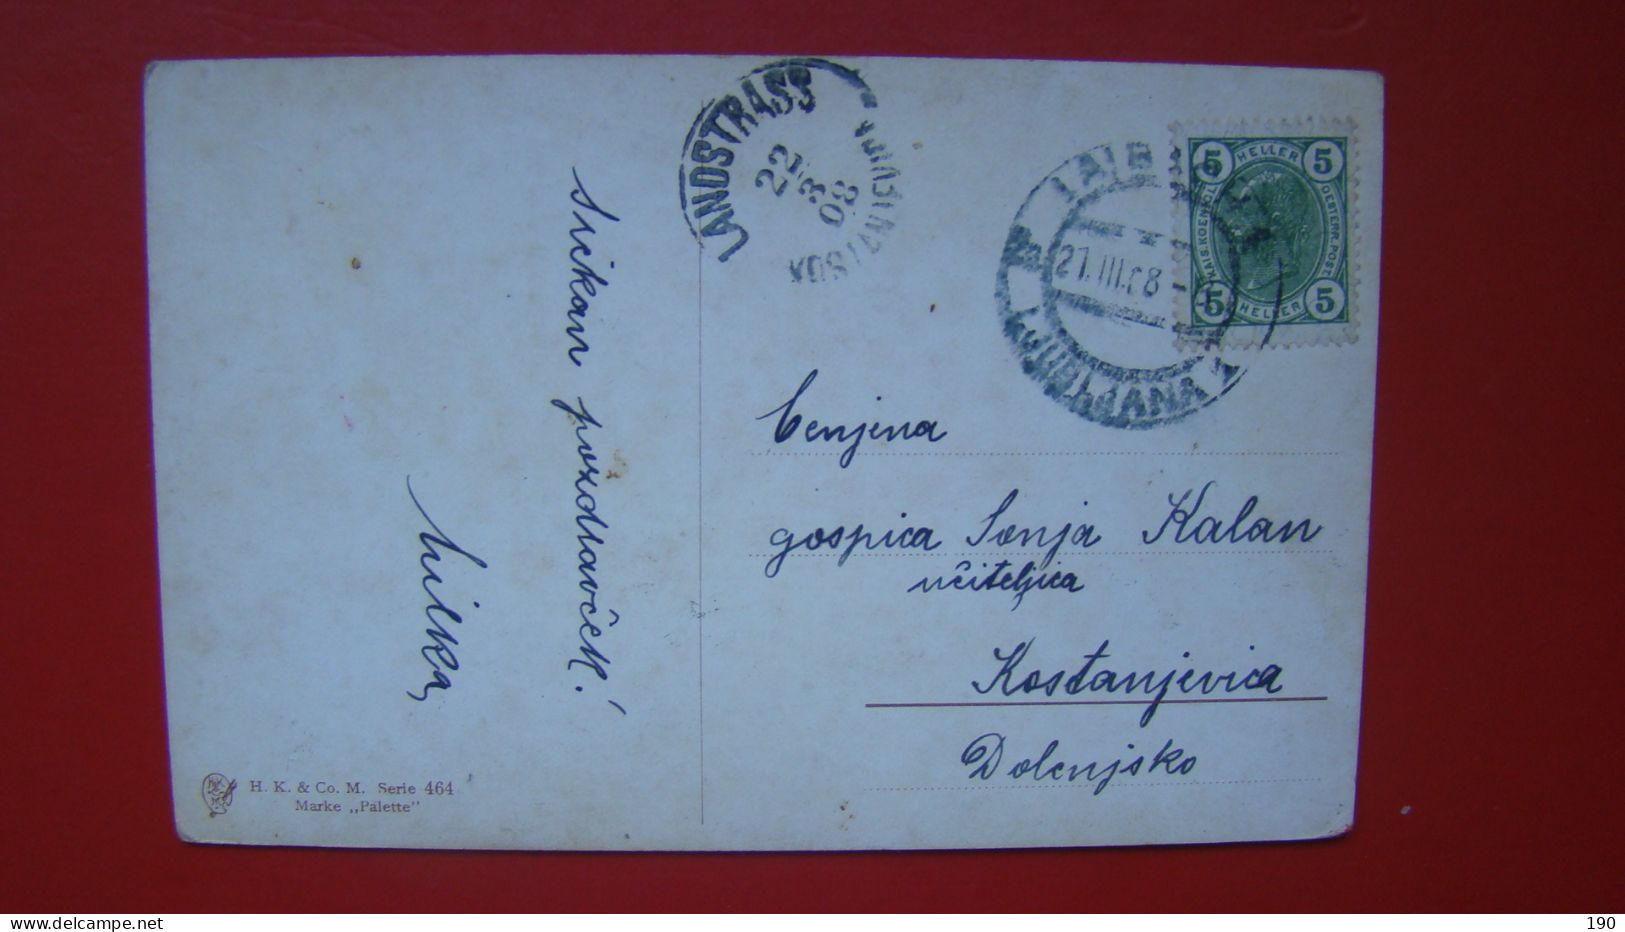 LANDSTRASS
22
3
08
KOSTANJEVICA
LAIBACH
21.III.08
LJUBLJANA 1
5 HELLER 5
KAIS. KOENIGL.
OESTERR. POST
5 HELLER 5
Srčkan pozdravček!
Milka
Cenjena
gospica Sonja Kalan
učiteljica
Kostanjevica
Dolenjsko
H. K. & Co. M. Serie 464
Marke „Palette"
190